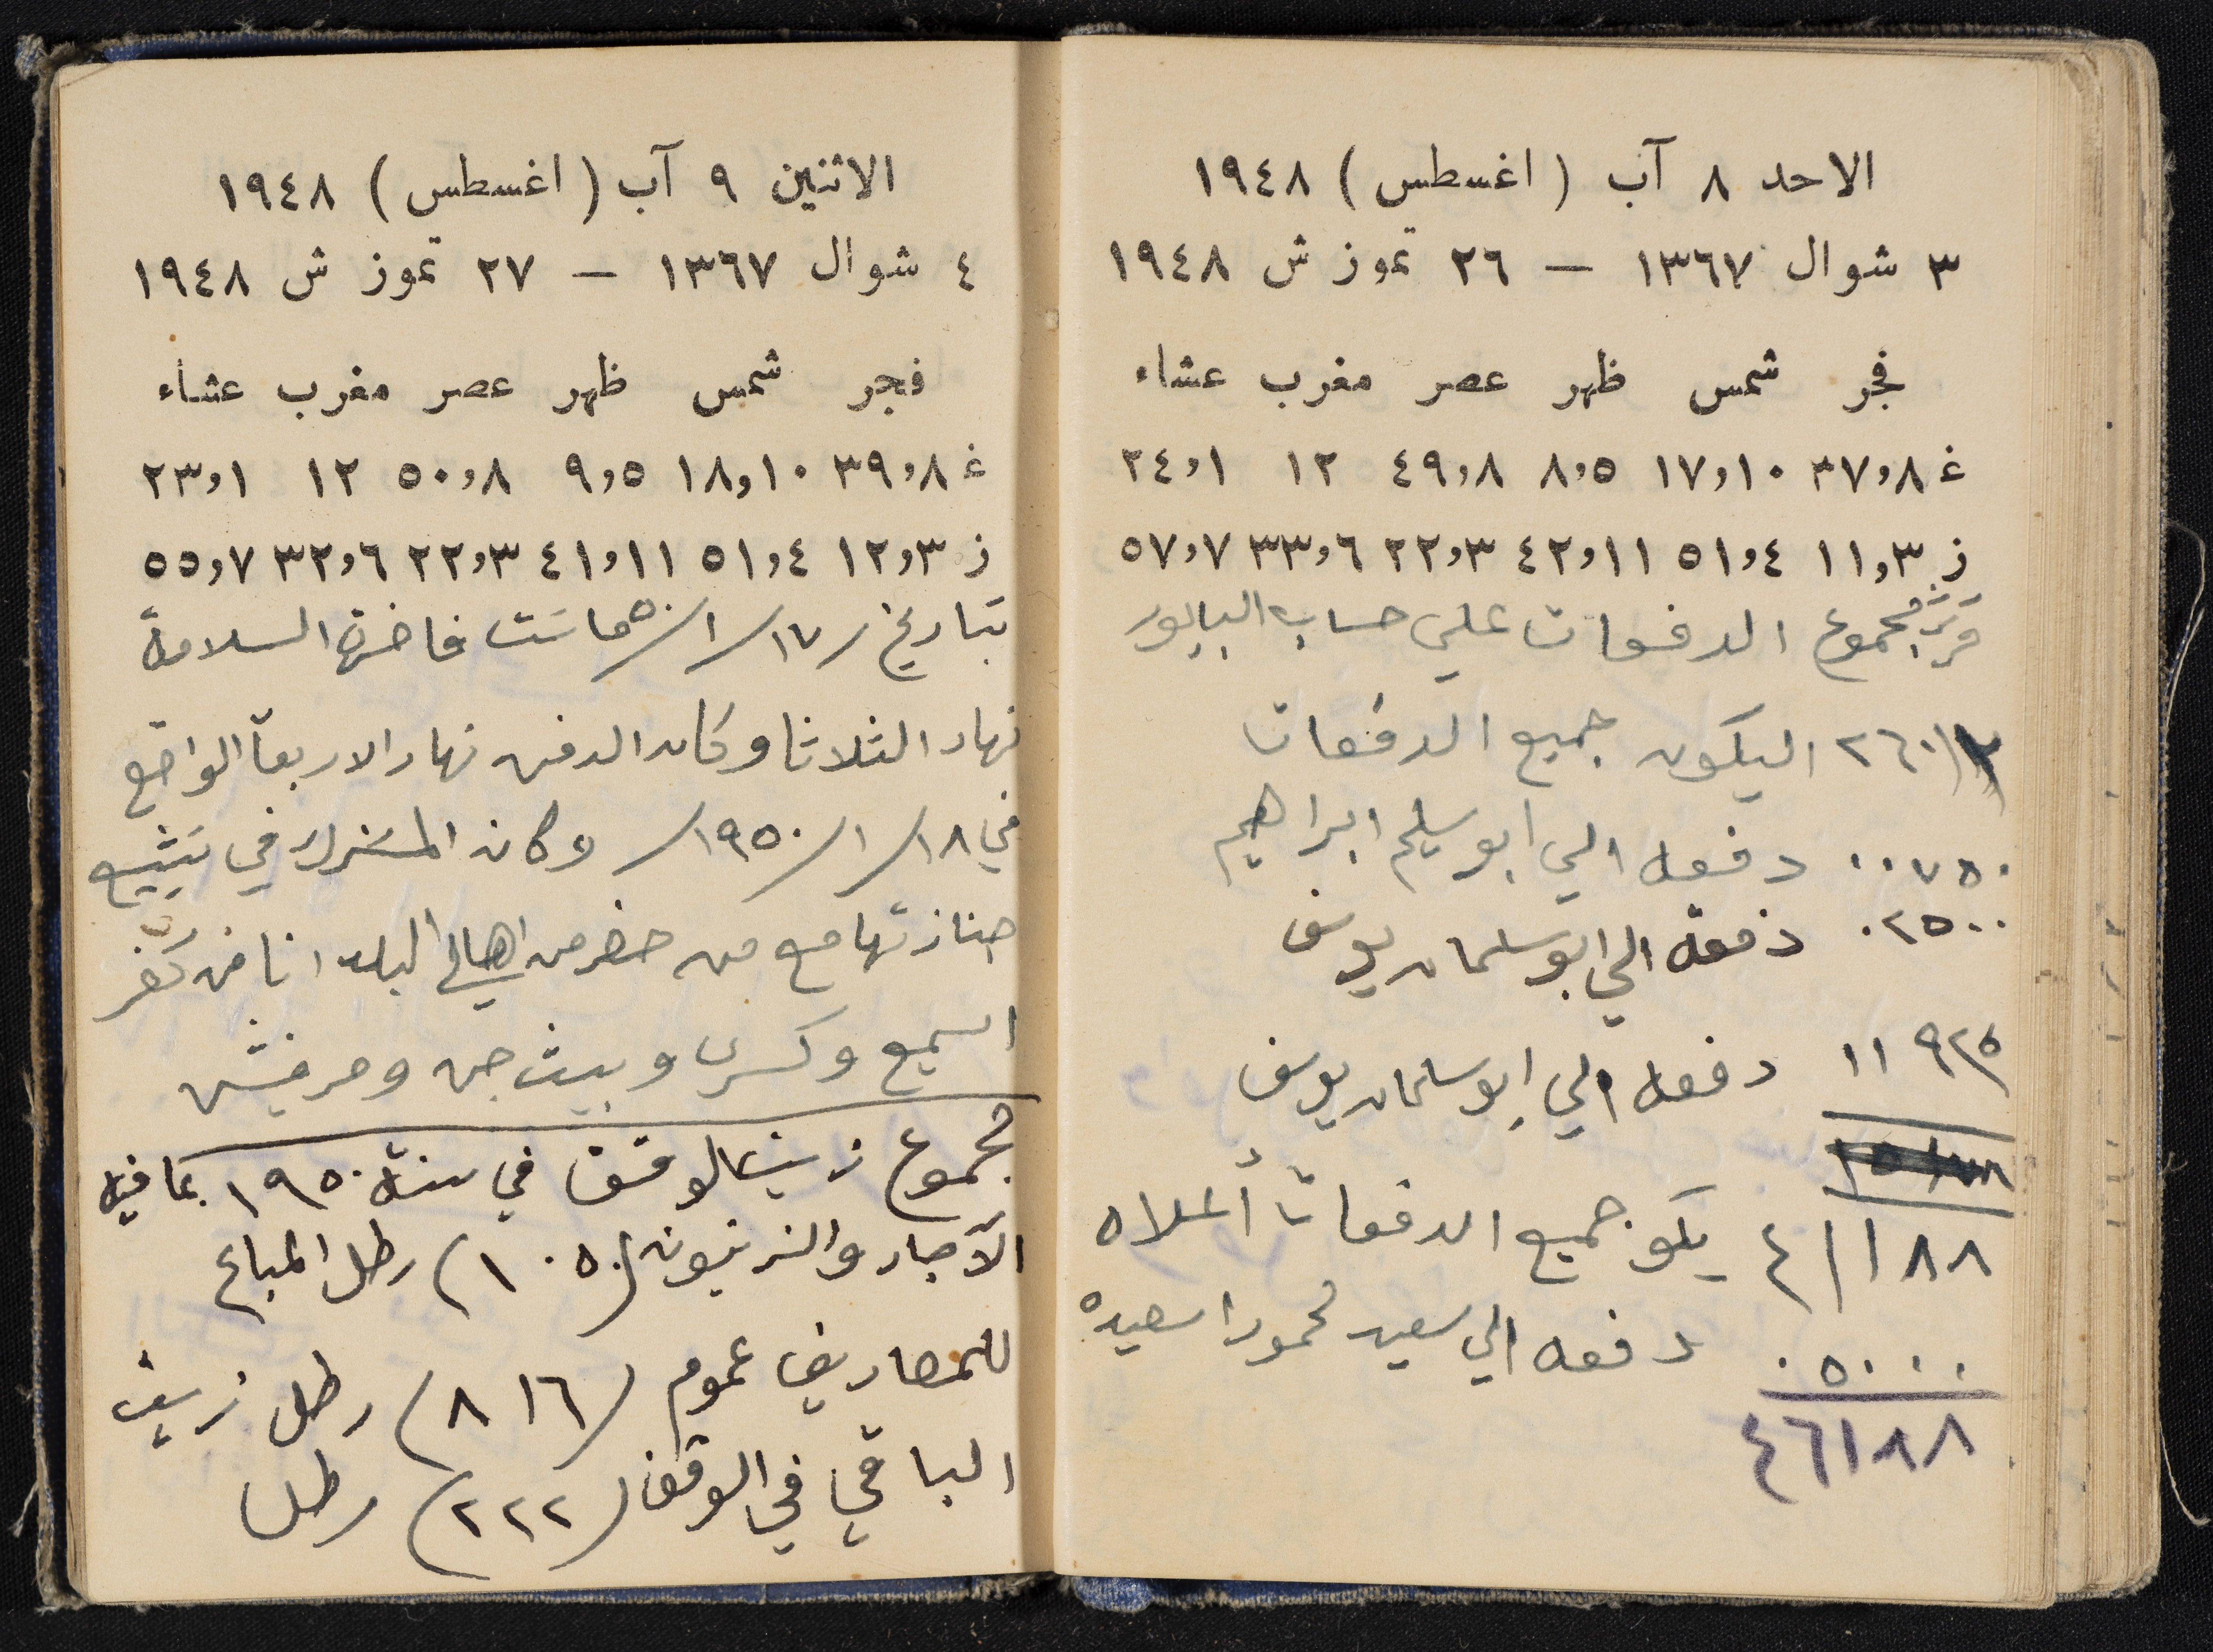 الاحد ٨ آب (اغسطس) ١٩٤٨
٣ شوال ١٣٦٧ — ٢٦ تموز ش ١٩٤٨
فجر شمس ظهر عصر مغرب عشاء
غ ٣٧,٨ ١٧,١٠ ٨,٥ ٤٩,٨ ١٢ ٢٤,١
ز ١١,٣ ٥١,٤ ٤٢,١١ ٢٢,٣ ٣٣,٦ ٥٧,٧
مجموع الدفعات علي حساب البابور
٢٦٠١ اليكون جميع الدفعات
٠٠٧٥٠ دفعه الي ابو سليم ابراهيم
٠٢٥٠٠ دفعه الي ابو سلمان يوسف
١١٩٢٥ دفعه الي ابو سلمان يوسف
٤١١٨٨ يكو جميع الدفعات أعلاه
٠٥٠٠٠ دفعه الي سعيد محمود اسعيد
٤٦١٨٨
الاثنين ٩ آب (اغسطس) ١٩٤٨
٤ شوال ١٣٦٧ — ٢٧ تموز ش ١٩٤٨
فجر شمس ظهر عصر مغرب عشاء
غ ٣٩,٨ ١٨,١٠ ٩,٥ ٥٠,٨ ١٢ ٢٣,١
ز ١٢,٣ ٥١,٤ ٤١,١١ ٢٢,٣ ٣٢,٦ ٥٥,٧
بتاريخ ١٧/١/٥٠ ماتت فاخرة السلامة
نهار الثلاثا وكان الدفن نهار الاربعا الواقع
في ١٨/١/١٩٥٠ وكان المشترك في تشيع
جنازتها مع من حضر من اهالي البلد اناس من كفر
اسميع وكسرى وبيت جن وحرفيش
مجموع زيت الوقف في سنة ١٩٥٠ بما فيه
الآجار والزيتون (١٠٥٠) رطل المباع
للمصاريف عموم (٨١٦) رطل زيت
الباقي في الوقف (٢٢٢) رطل